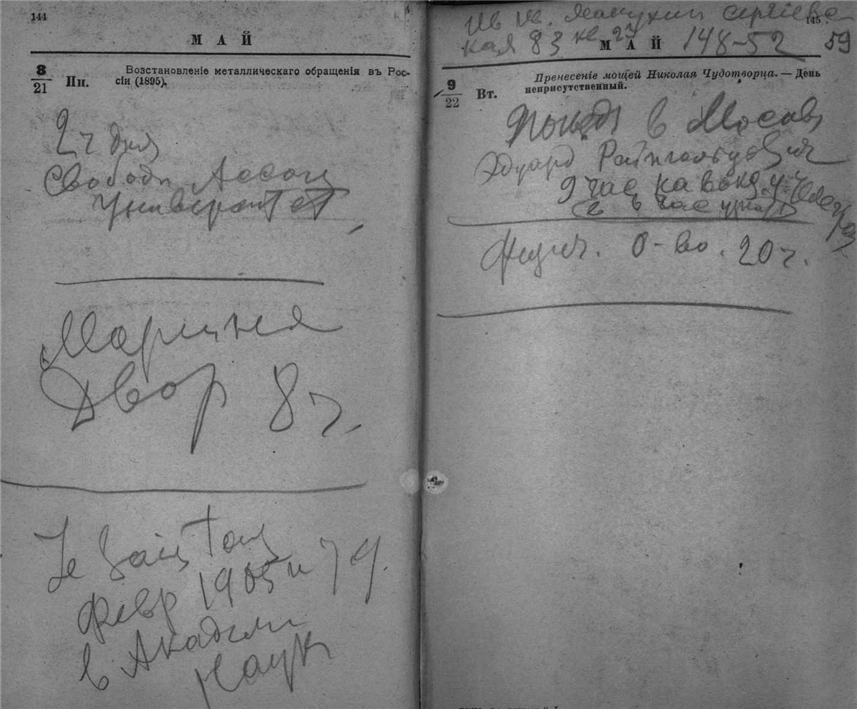 144
МАЙ
8
21
Пн.
Возстановленіе металлическаго обращенія въ Рос-
сіи (1895).
2 ч дня
Свободн Ассоц
Университет
Мариин
Двор 8 ч.
Je sais tout
февр 1905 и 7 ч.
в Академи
Наук
Ив Ив. Манухин Сергиевс
кая 83 кв 27
148-52
59
145
МАЙ
9
22
Вт.
Пренесеніе мощей Николая Чудотворца. — День
неприсутственный.
в Москв
Эдуард
9 час на вокз.
час
Физич. О-во. 20 ч.